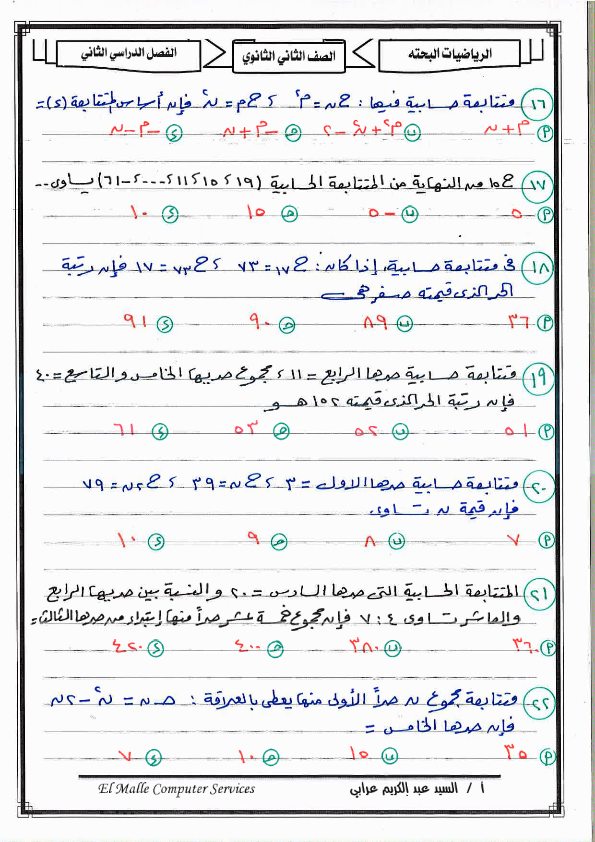 الرياضيات البحته
الصف الثاني الثانوي
الفصل الدراسي الثاني
١٦ متتابعة حسابية فيها : ح ن = م٢ ، ح م = ن٢ فإن أساس المتتابعة (د) =
أ م + ن ب م٢ + ن٢ - ٢ ج - م + ن د - م - ن
١٧ ح ١٥ من النهاية من المتتابعة الحسابية (١٩ ، ١٥ ، ١١ ، --- ، -٦١) يساوى --
أ ٥ ب -٥ ج ١٥ د ١٠
١٨ فى متتابعة حسابية، إذا كان : ح ١٧ = ٧٣ ، ح ٧٣ = ١٧ فإن رتبة
الحد الذى قيمته صفر هى
أ ٣٦ ب ٨٩ ج ٩٠ د ٩١
١٩ متتابعة حسابية حدها الرابع = ١١ ، مجموع حديها الخامس والتاسع = ٤٠
فإن رتبة الحد الذى قيمته ١٥٢ هو
أ ٥١ ب ٥٢ ج ٥٣ د ٦١
٢٠ متتابعة حسابية حدها الاول = ٣ ، ح ن = ٣٩ ، ح ٢ن = ٧٩
فإن قيمة ن تساوى
أ ٧ ب ٨ ج ٩ د ١٠
٢١ المتتابعة الحسابية التى حدها السادس = ٢٠ والنسبة بين حديها الرابع
والعاشر تساوى ٤ : ٧ فإن مجموع خمسة عشر حداً منها إبتداء من حدها الثالث =
أ ٣٦٠ ب ٣٨٠ ج ٤٠٠ د ٤٢٠
٢٢ متتابعة مجموع ن حداً الأولى منها يعطى بالعلاقة : جـ ن = ن٢ - ٢ن
فإن حدها الخامس =
أ ٣٥ ب ١٥ ج ١٠ د ٧
أ / السيد عبد الكريم عرابي
El Malle Computer Services